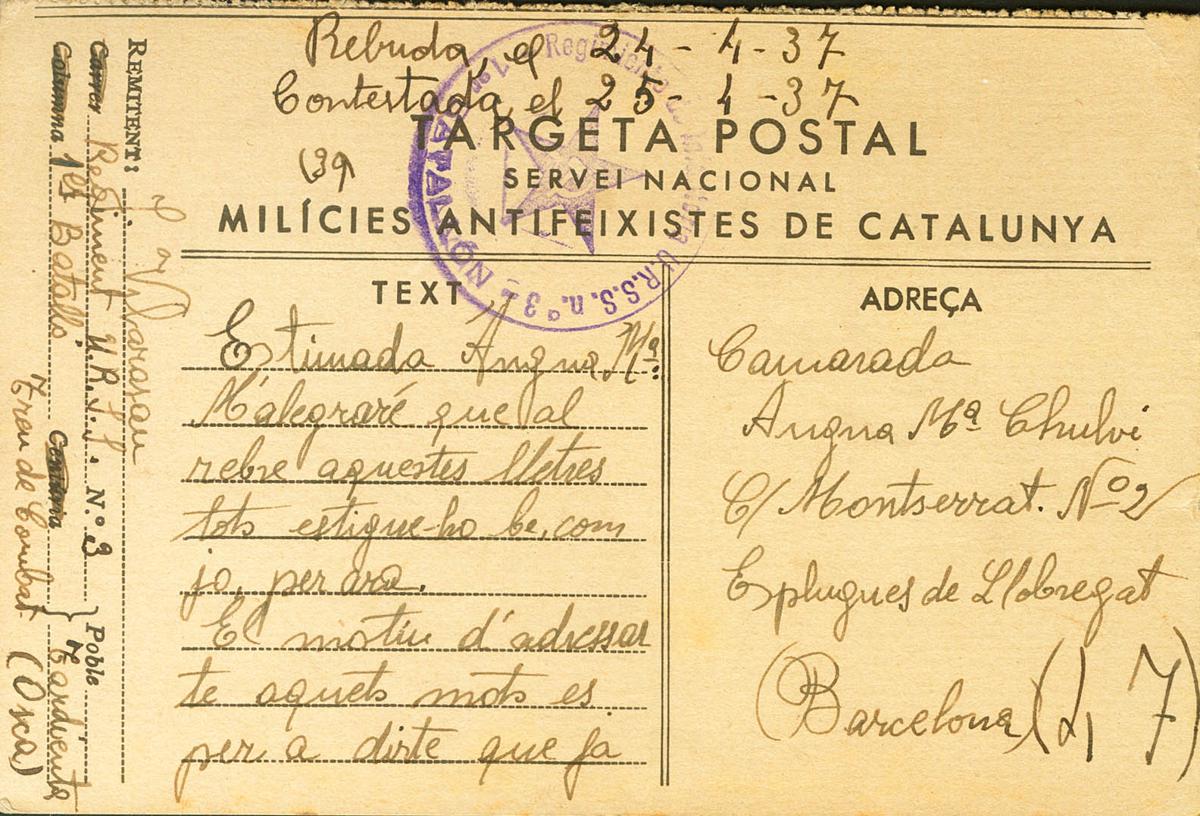 Rebuda, el 24-4-37
Contestada, el 25-4-37
TARGETA POSTAL
SERVEI NACIONAL
MILÍCIES ANTIFEIXISTES DE CATALUNYA
TEXT
Estimada Angna Mª:
M'alegraré que al
rebre aquestes lletres
tots estigue-ho be, com
jo, per ara.
El motiu d'adressar
te aquets mots es
per a dirte que ja
ADREÇA
Camarada
Angna Mª Chulvi
C/ Montserrat. Nº 2
Esplugues de Llobregat
(Barcelona)
REMITENT:
Carrer Regiment U.R.S.S. N.º 3 Poble Tardienta
Columna 1er Batalló Centúria
Tren de Combat (Osca)
U.R.S.S. n.º 3
CATALUÑ